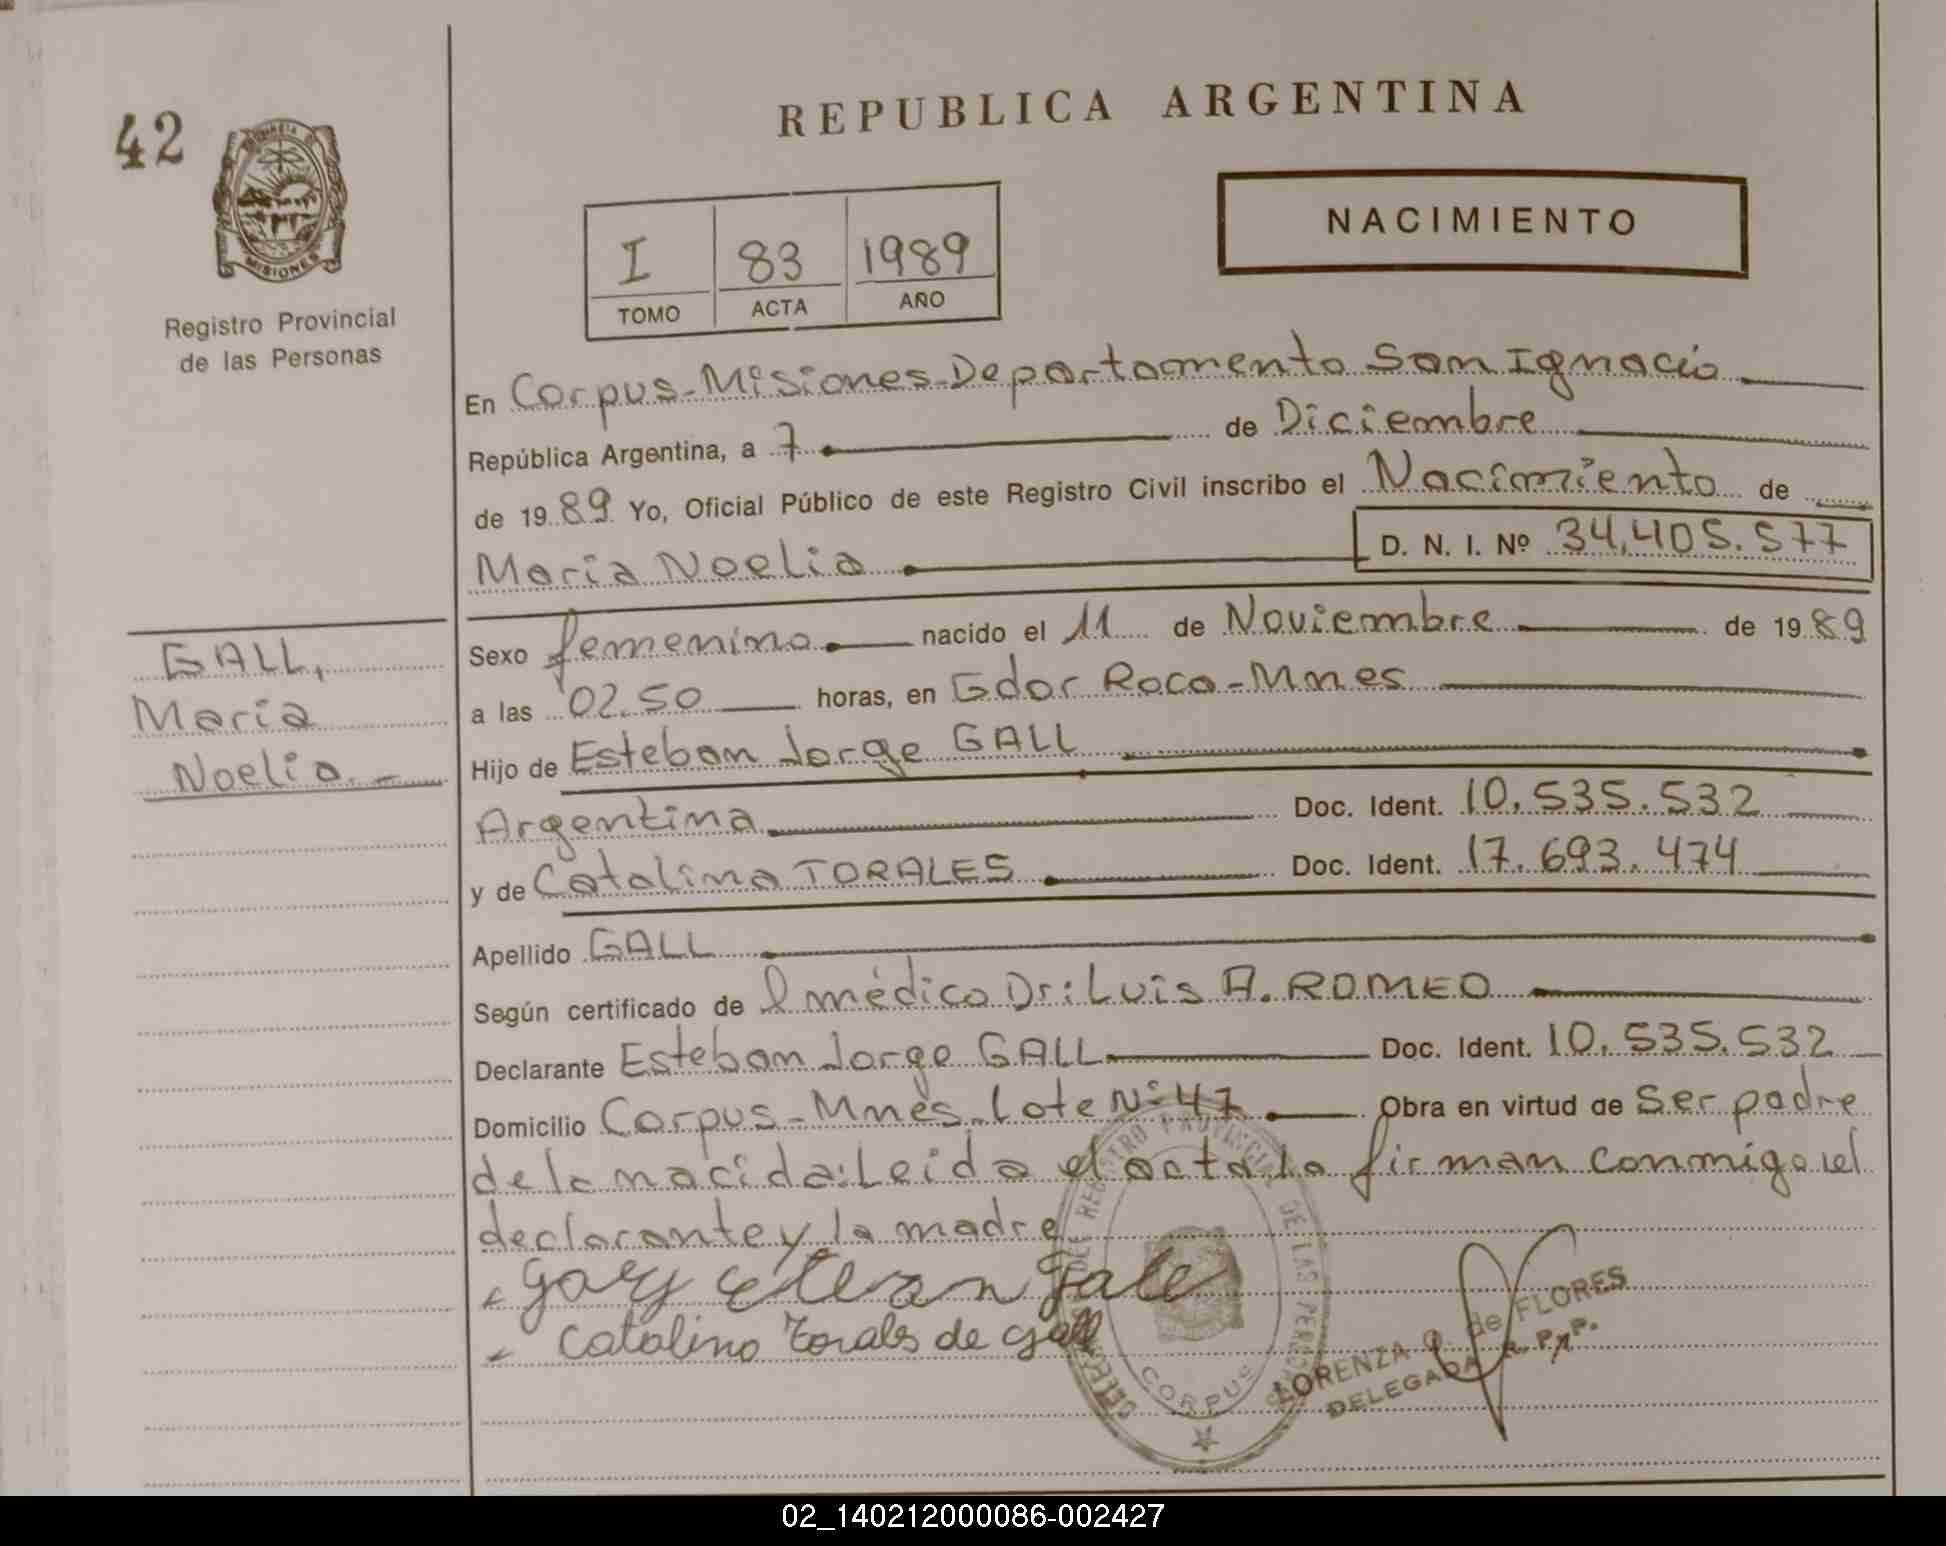 42
REPUBLICA ARGENTINA
NACIMIENTO
I 83 1989
TOMO ACTA AÑO
MISIONES
Registro Provincial
de las Personas
En Corpus-Misiones-Departamento San Ignacio
República Argentina, a 7 de Diciembre
de 1989 Yo, Oficial Público de este Registro Civil inscribo el Nacimiento de
Maria Noelia D. N. I. Nº 34.405.577
GALL,
Maria
Noelia.-
Sexo femenino nacido el 11 de Noviembre de 1989
a las 02.50 horas, en Gdor Roca-Mnes
Hijo de Esteban Jorge GALL
Argentina Doc. Ident. 10.535.532
y de Catalina TORALES Doc. Ident. 17.693.474
Apellido GALL
Según certificado de l médico Dr: Luis A. ROMEO
Declarante Esteban Jorge GALL Doc. Ident. 10.535.532
Domicilio Corpus-Mnes-Lote Nº 47 Obra en virtud de Ser padre
de la nacida: Leida el acta la firman conmigo, el
declarante y la madre
Catalina Torales de Gall
CORPUS
LORENZA de FLORES
DELEGADA R. P. P.
02_140212000086-002427